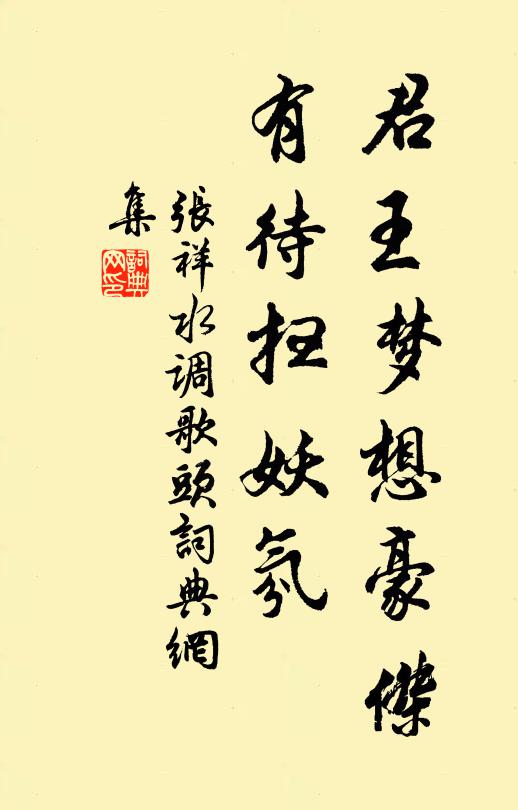 君王梦想豪傑
有待扫妖氛
張祥水调歌頭詞典網
集
詞典
网印